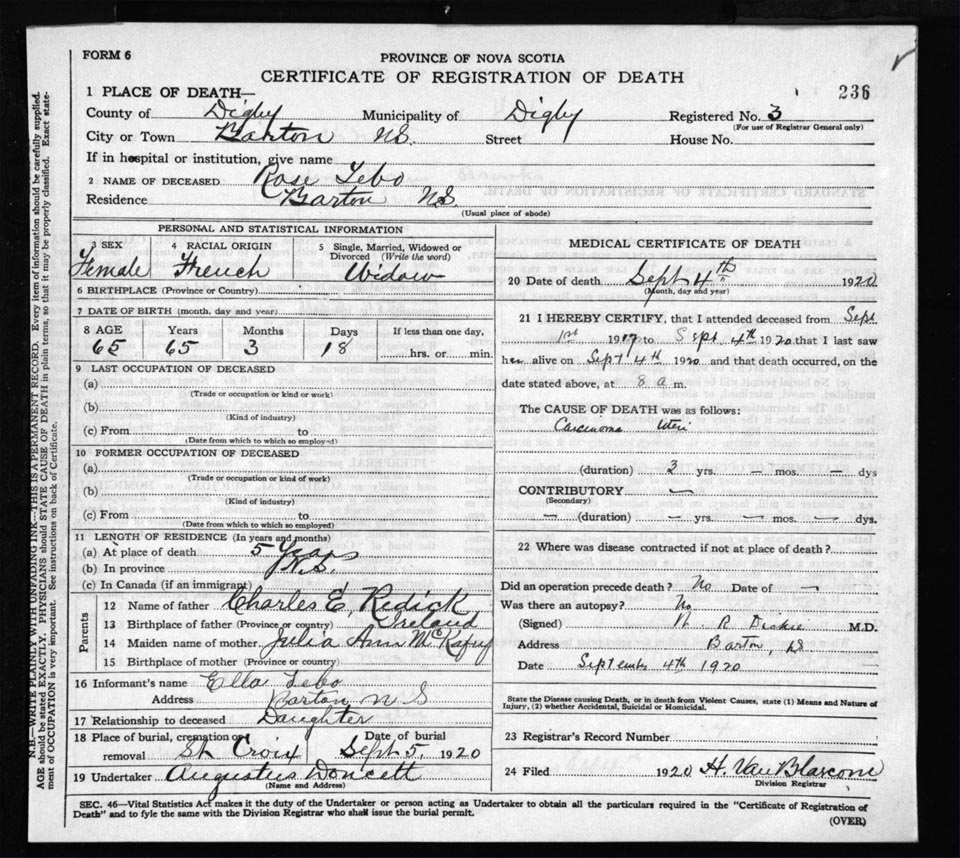 FORM 6
PROVINCE OF NOVA SCOTIA
CERTIFICATE OF REGISTRATION OF DEATH
236
1 PLACE OF DEATH—
County of Digby Municipality of Digby Registered No. 3
(For use of Registrar General only)
City or Town Barton N.S. Street House No.
If in hospital or institution, give name
2 NAME OF DECEASED Rose Tebo
Residence Barton N.S.
(Usual place of abode)
PERSONAL AND STATISTICAL INFORMATION
3 SEX 4 RACIAL ORIGIN 5 Single, Married, Widowed or Divorced (Write the word)
Female French Widow
6 BIRTHPLACE (Province or Country)
7 DATE OF BIRTH (month, day and year)
8 AGE Years Months Days If less than one day,
65 65 3 18 hrs. or min.
9 LAST OCCUPATION OF DECEASED
(a)
(Trade or occupation or kind or work)
(b)
(Kind of industry)
(c) From to
(Date from which to which so employed)
10 FORMER OCCUPATION OF DECEASED
(a)
(Trade or occupation or kind of work)
(b)
(Kind of industry)
(c) From to
(Date from which to which so employed)
11 LENGTH OF RESIDENCE (In years and months)
(a) At place of death 5 Years
(b) In province N.S.
(c) In Canada (if an immigrant)
Parents
12 Name of father Charles E. Redick
13 Birthplace of father (Province or country) Ireland
14 Maiden name of mother Julia Ann
15 Birthplace of mother (Province or country)
16 Informant's name Ella Tebo
Address Barton N S
17 Relationship to deceased Daughter
18 Place of burial, cremation or removal St Croix Date of burial Sept 5, 1920
19 Undertaker Augustus Doucett
(Name and Address)
MEDICAL CERTIFICATE OF DEATH
20 Date of death Sept 4th 1920
(Month, day and year)
21 I HEREBY CERTIFY, that I attended deceased from Sept
1st 1917 to Sept 4th 1920 that I last saw
her alive on Sept 4th 1920 and that death occurred, on the
date stated above, at 8 a m.
The CAUSE OF DEATH was as follows:
Carcinoma Uteri
(duration) 3 yrs. — mos. — dys
CONTRIBUTORY —
(Secondary)
— (duration) — yrs. — mos. — dys.
22 Where was disease contracted if not at place of death?
Did an operation precede death? No Date of —
Was there an autopsy? No
(Signed) R Dickie M.D.
Address Barton,
Date September 4th 1920
State the Disease causing Death, or in death from Violent Causes, state (1) Means and Nature of
Injury, (2) whether Accidental, Suicidal or Homicidal.
23 Registrar's Record Number
24 Filed 1920 H. Van Blarcom
Division Registrar
SEC. 46—Vital Statistics Act makes it the duty of the Undertaker or person acting as Undertaker to obtain all the particulars required in the "Certificate of Registration of
Death" and to fyle the same with the Division Registrar who shall issue the burial permit.
(OVER)
N.B.—WRITE PLAINLY WITH UNFADING INK—THIS IS A PERMANENT RECORD. Every item of information should be carefully supplied.
AGE should be stated EXACTLY. PHYSICIANS should STATE CAUSE OF DEATH in plain terms, so that it may be properly classified. Exact state-
ment of OCCUPATION is very important. See instructions on back of Certificate.